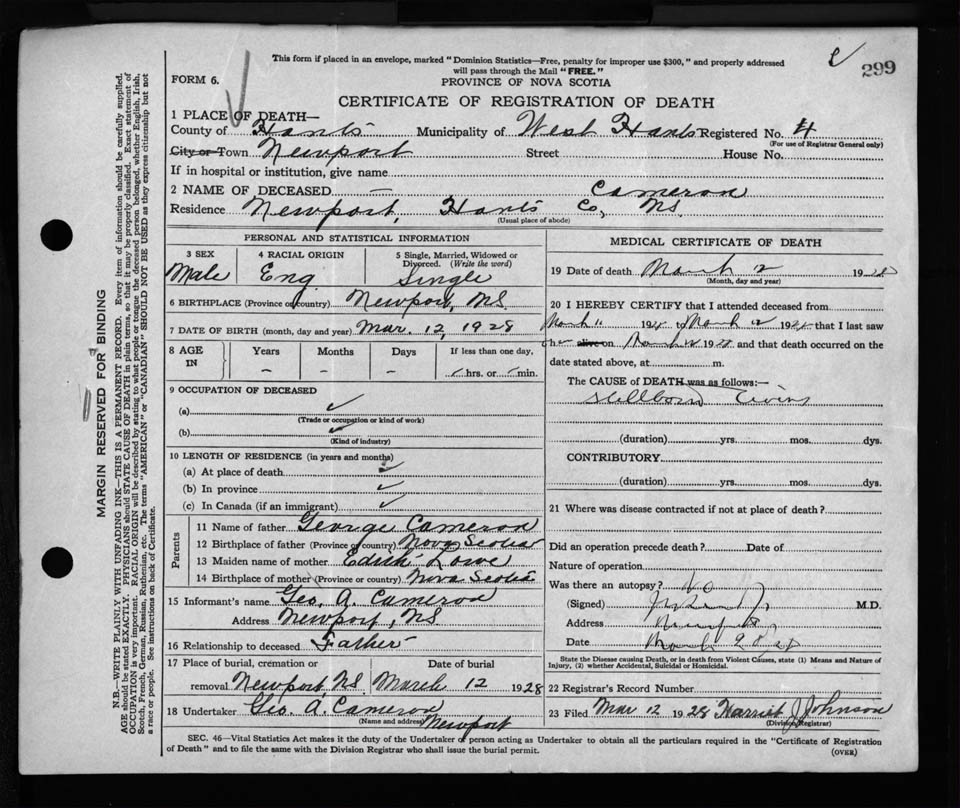 This form if placed in an envelope, marked "Dominion Statistics—Free, penalty for improper use $300," and properly addressed
will pass through the Mail "FREE."
299
FORM 6.
PROVINCE OF NOVA SCOTIA
CERTIFICATE OF REGISTRATION OF DEATH
1 PLACE OF DEATH—
County of Hants Municipality of West Hants Registered No. 4
(For use of Registrar General only)
City or Town Newport Street House No.
If in hospital or institution, give name
2 NAME OF DECEASED — Cameron
Residence Newport, Hants Co, NS.
(Usual place of abode)
PERSONAL AND STATISTICAL INFORMATION
3 SEX 4 RACIAL ORIGIN 5 Single, Married, Widowed or
Divorced. (Write the word)
Male Eng Single
6 BIRTHPLACE (Province or country) Newport, NS
7 DATE OF BIRTH (month, day and year) Mar. 12, 1928
8 AGE IN Years Months Days If less than one day,
— — — hrs. or min.
9 OCCUPATION OF DECEASED
(a)
(Trade or occupation or kind of work)
(b)
(Kind of industry)
10 LENGTH OF RESIDENCE (in years and months)
(a) At place of death
(b) In province
(c) In Canada (if an immigrant)
Parents
11 Name of father George Cameron
12 Birthplace of father (Province or country) Nova Scotia
13 Maiden name of mother Edith Lowe
14 Birthplace of mother (Province or country) Nova Scotia
15 Informant's name Geo. A. Cameron
Address Newport, NS
16 Relationship to deceased Father
17 Place of burial, cremation or Date of burial
removal Newport NS. March 12 1928
18 Undertaker Geo. A. Cameron
(Name and address) Newport
MEDICAL CERTIFICATE OF DEATH
19 Date of death March 12 1928
(Month, day and year)
20 I HEREBY CERTIFY that I attended deceased from
March 11 192 to March 12 192 that I last saw
h alive on March 12 1928 and that death occurred on the
date stated above, at m.
The CAUSE of DEATH was as follows:—
Stillborn Twins
(duration) yrs. mos. dys.
CONTRIBUTORY
(duration) yrs. mos. dys.
21 Where was disease contracted if not at place of death?
Did an operation precede death? Date of
Nature of operation
Was there an autopsy? No
(Signed) M.D.
Address Newport
Date March 28
State the Disease causing Death, or in death from Violent Causes, state (1) Means and Nature of
Injury, (2) whether Accidental, Suicidal or Homicidal.
22 Registrar's Record Number
23 Filed Mar 12 1928 Harriet J Johnson
(Division Registrar)
SEC. 46—Vital Statistics Act makes it the duty of the Undertaker or person acting as Undertaker to obtain all the particulars required in the "Certificate of Registration
of Death" and to file the same with the Division Registrar who shall issue the burial permit.
(OVER)
MARGIN RESERVED FOR BINDING
N.B.—WRITE PLAINLY WITH UNFADING INK—THIS IS A PERMANENT RECORD. Every item of information should be carefully supplied.
AGE should be stated EXACTLY. PHYSICIANS should STATE CAUSE OF DEATH in plain terms, so that it may be properly classified. Exact statement of
OCCUPATION is very important. RACIAL ORIGIN will be described by stating to what people or tongue the deceased person belonged, whether English, Irish,
Scotch, French, German, Russian, Ruthenian, etc. The terms "AMERICAN" or "CANADIAN" SHOULD NOT BE USED as they express citizenship but not
a race or people. See instructions on back of Certificate.